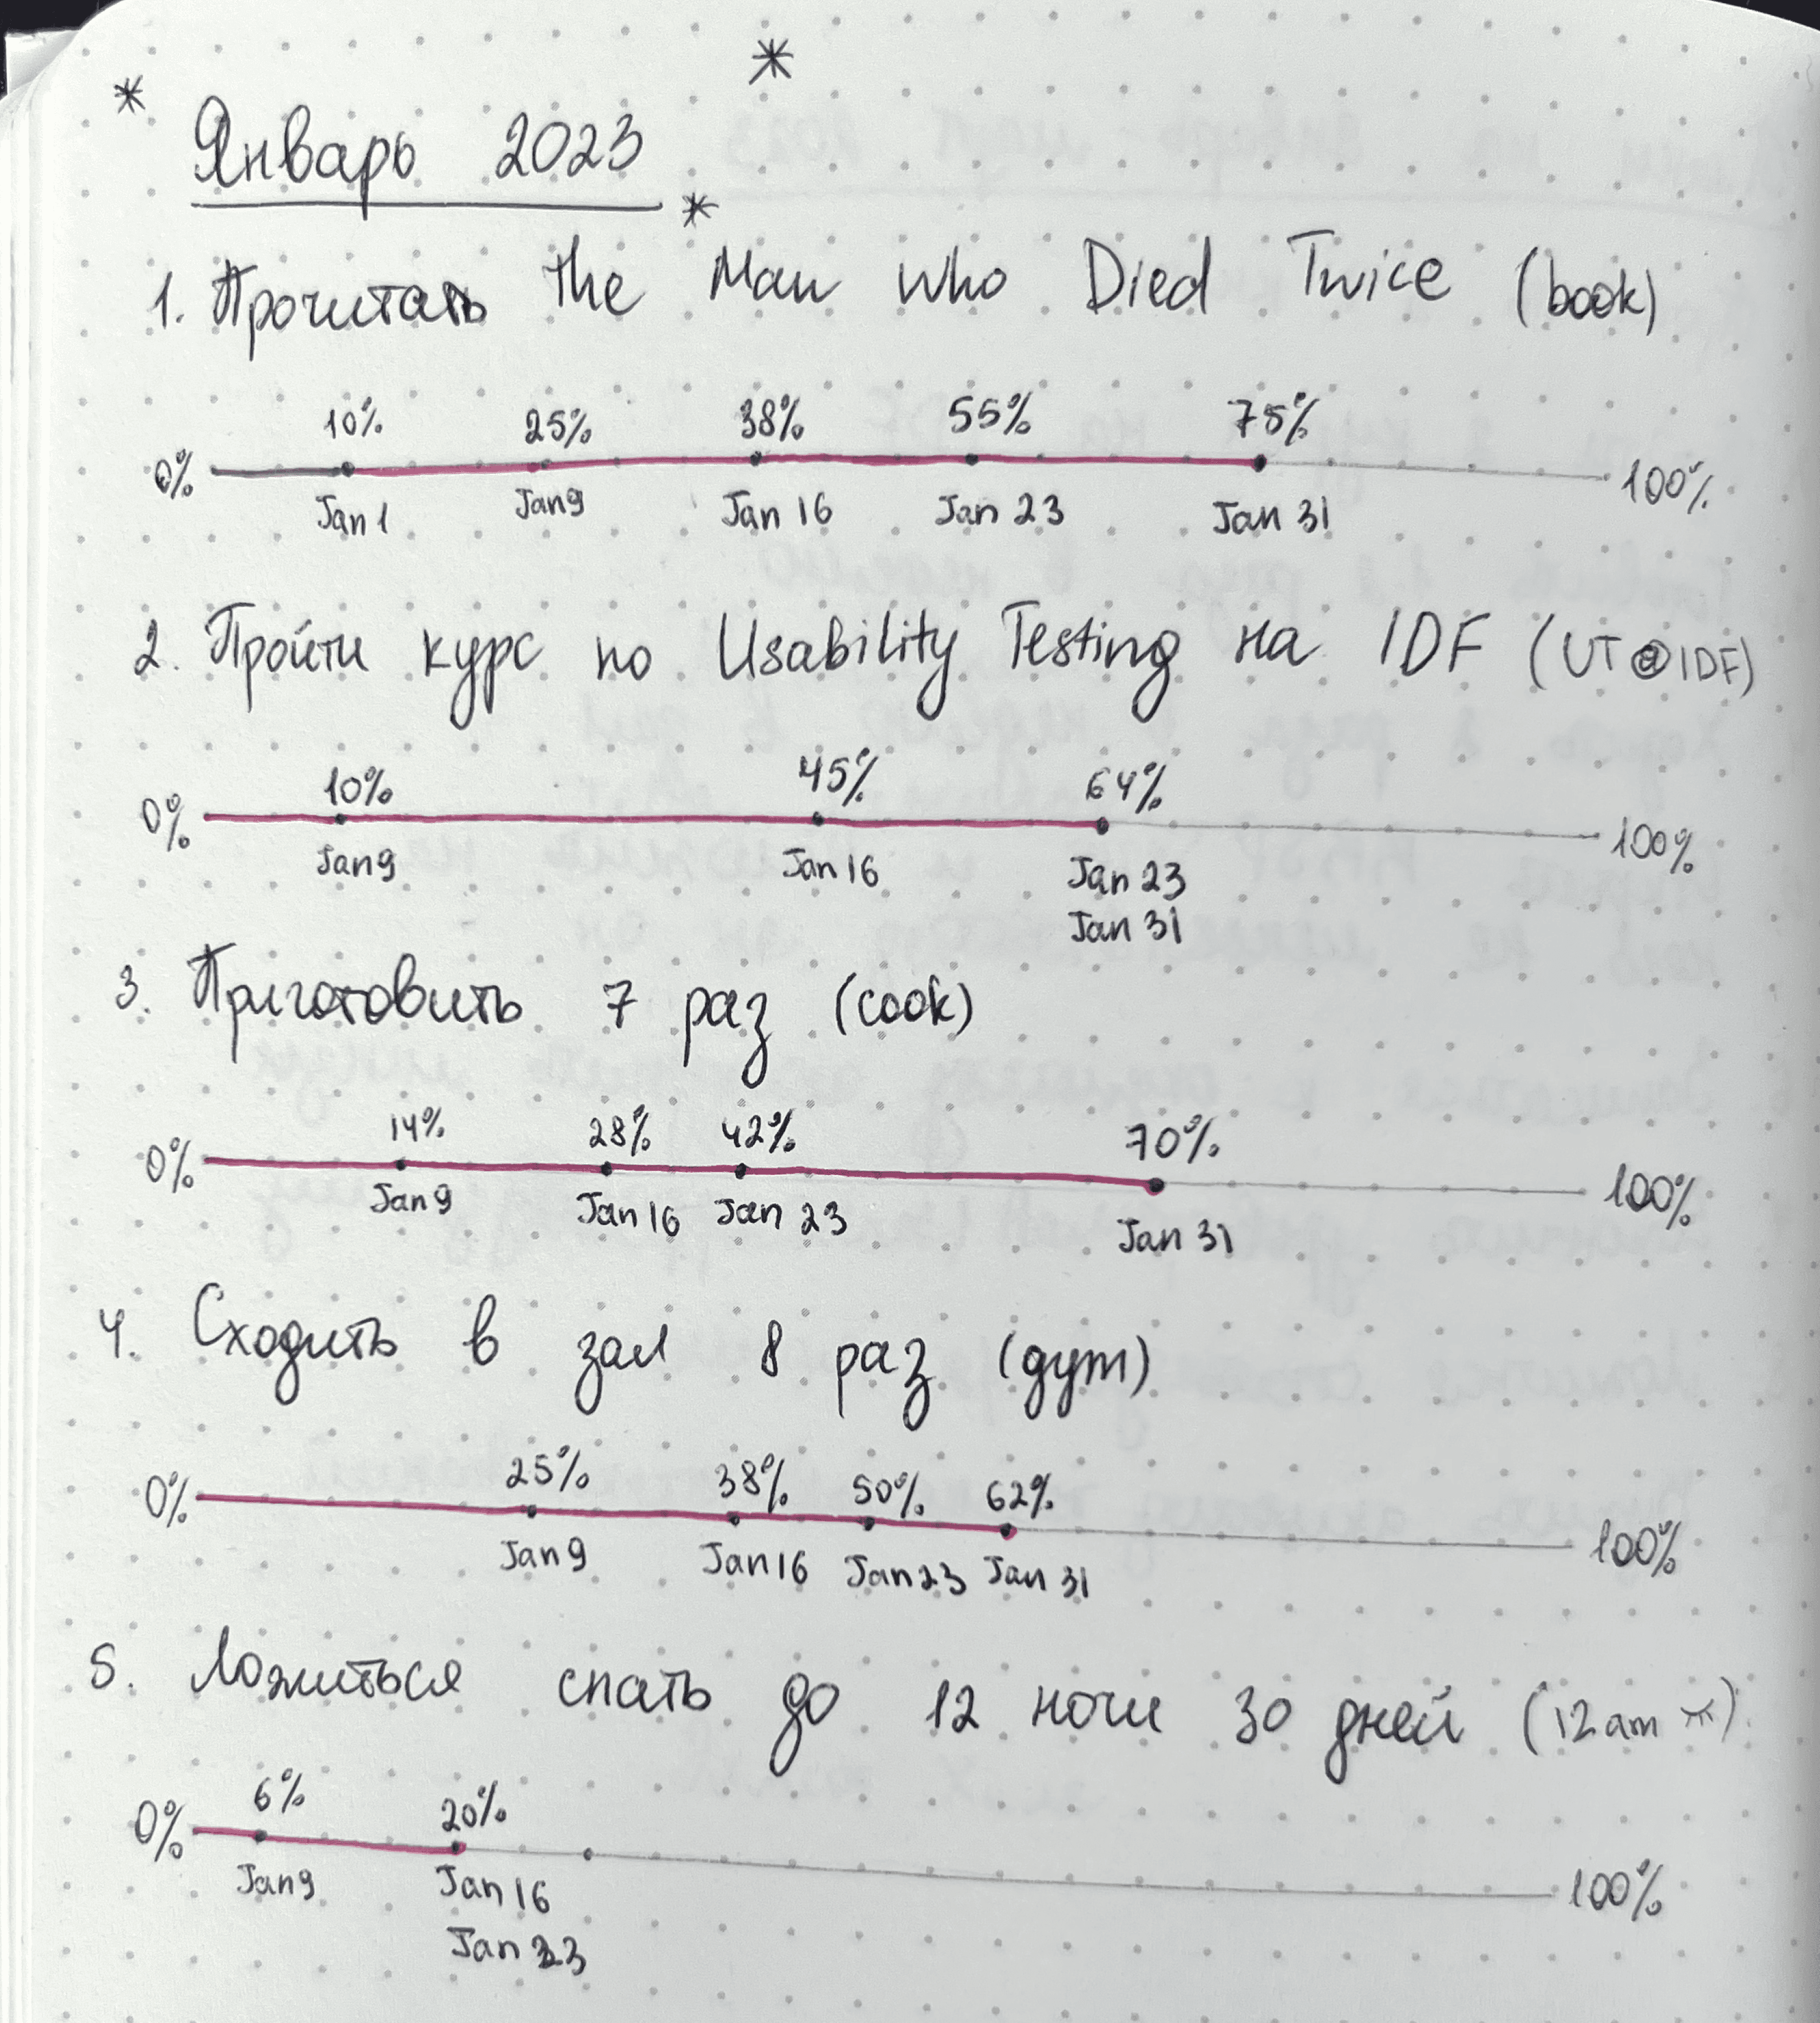 Январь 2023
1. Прочитать the Man Who Died Twice (book)
10% 25% 38% 55% 75%
0% 100%
Jan 1 Jan 9 Jan 16 Jan 23 Jan 31
2. Пройти курс по Usability Testing на IDF (UT@IDF)
10% 45% 64%
0% 100%
Jan 9 Jan 16 Jan 23
Jan 31
3. Приготовить 7 раз (cook)
14% 28% 42% 70%
0% 100%
Jan 9 Jan 16 Jan 23 Jan 31
4. Сходить в зал 8 раз (gym)
25% 38% 50% 62%
0% 100%
Jan 9 Jan 16 Jan 23 Jan 31
5. Ложиться спать до 12 ночи 30 дней (12am)
6% 20%
0% 100%
Jan 9 Jan 16
Jan 23